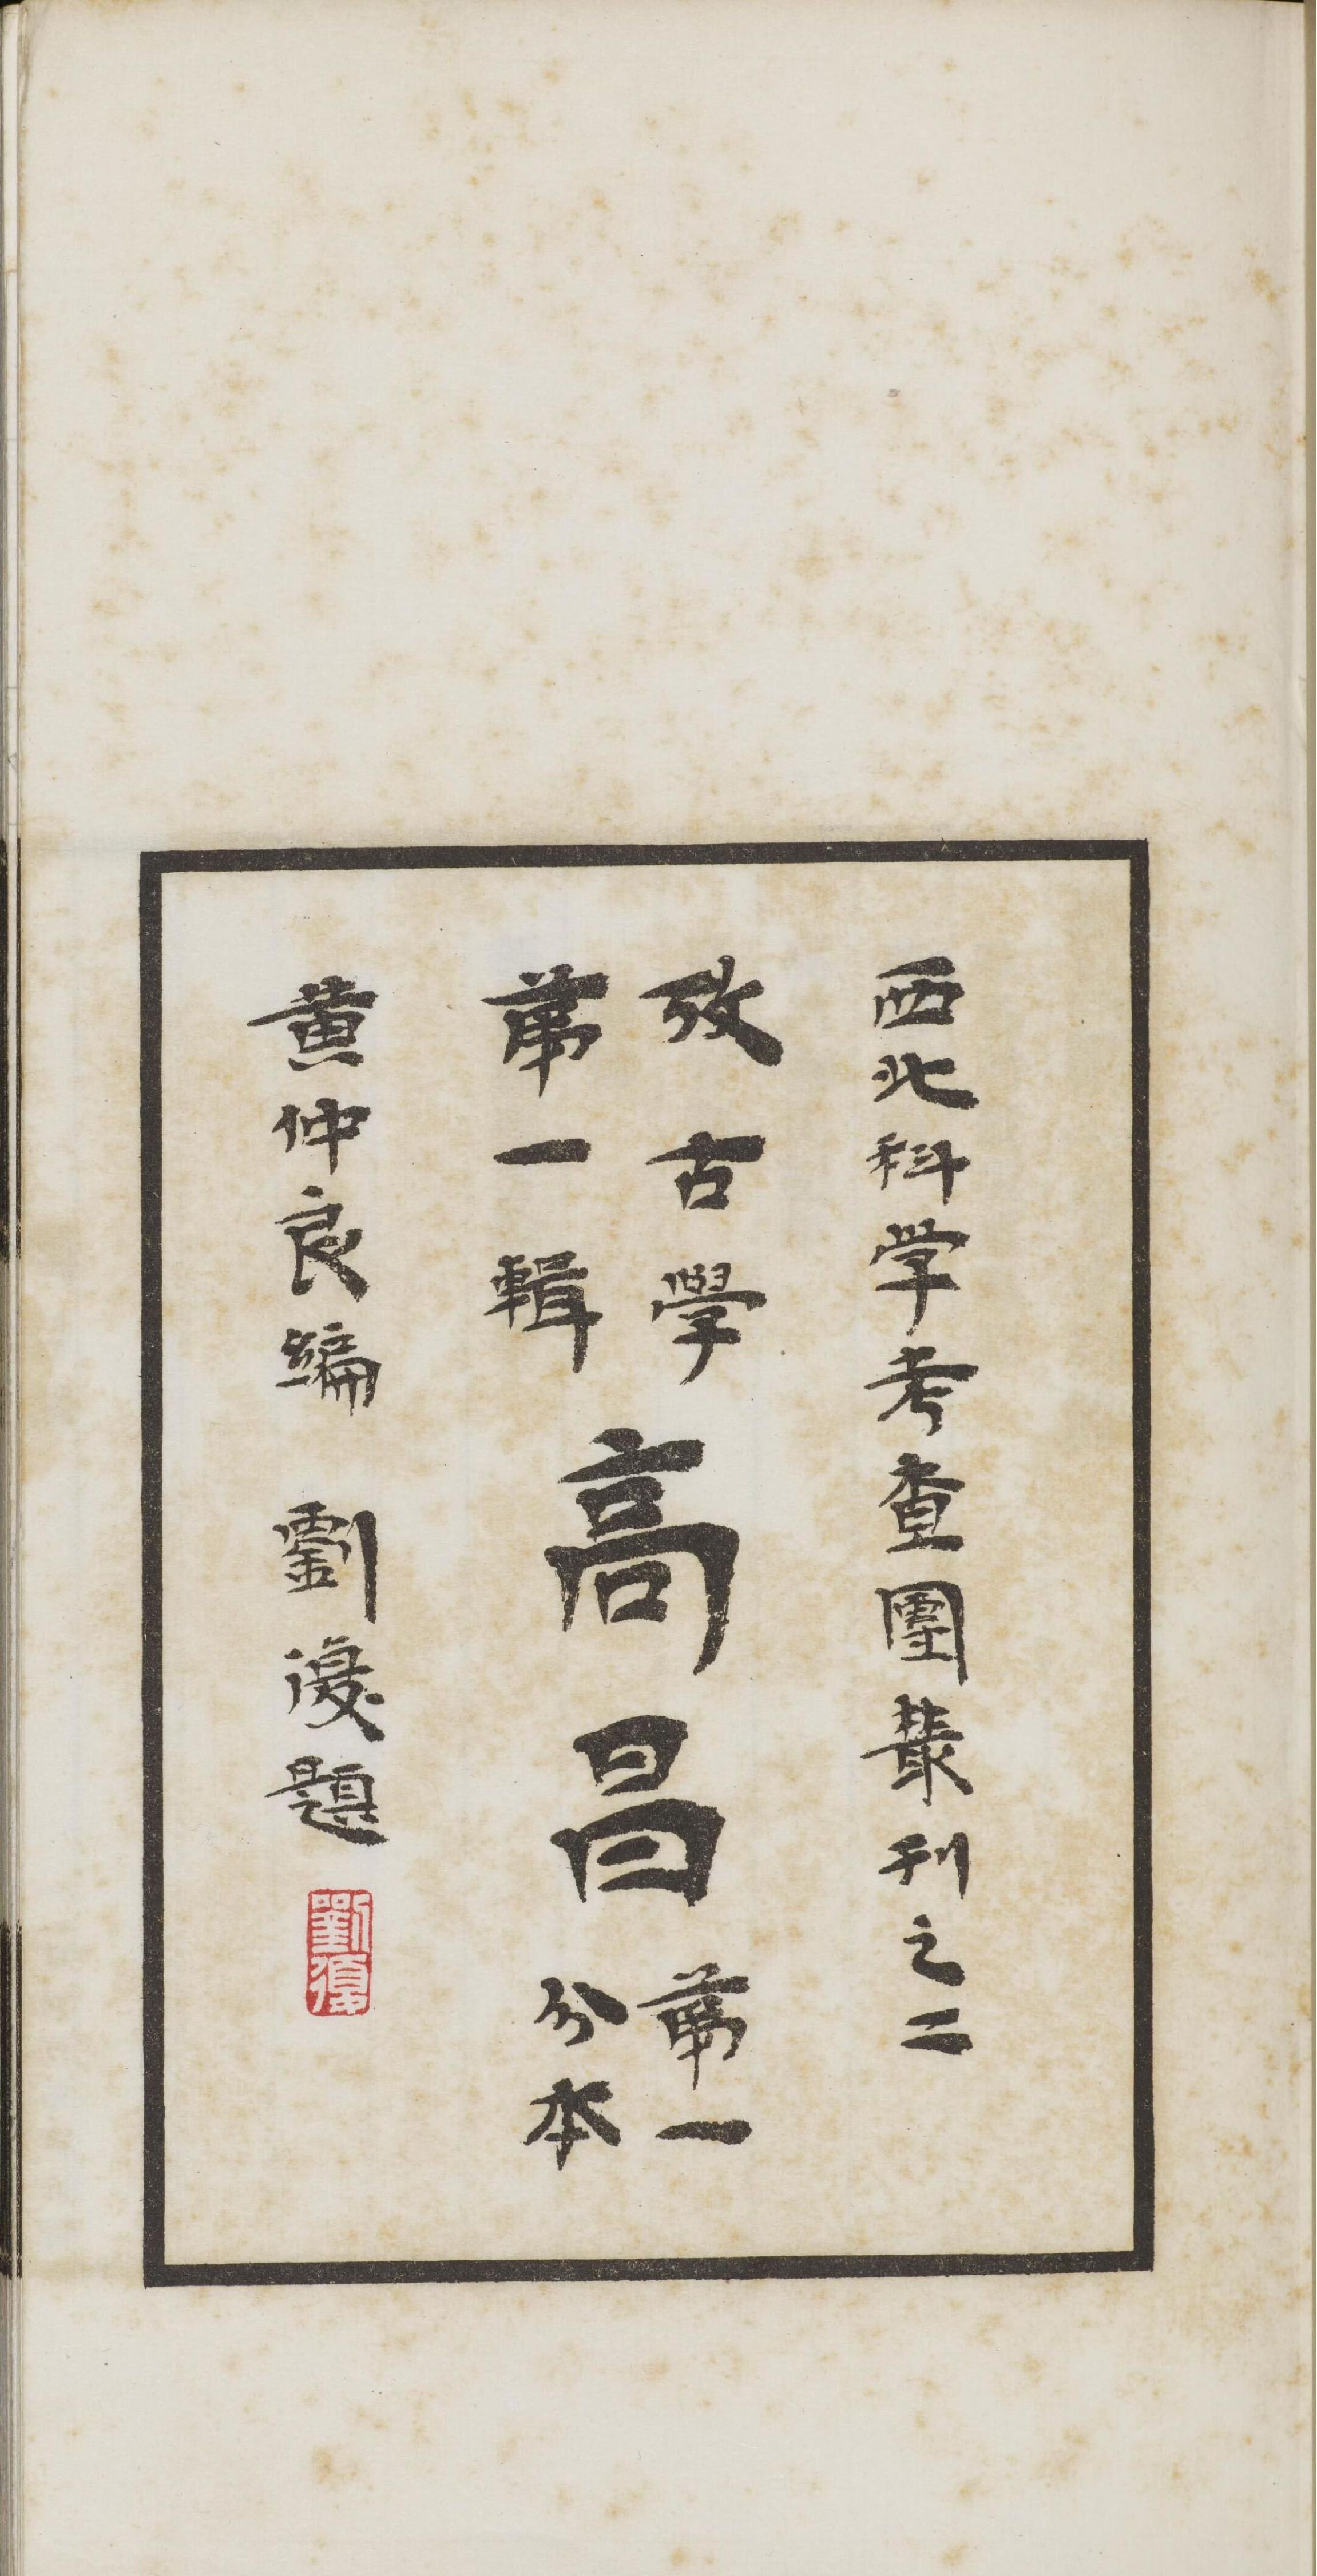 西北科学考查團叢刊之二
攷古學
第一輯
高昌
第一
分本
黄仲良編 劉復題
劉復